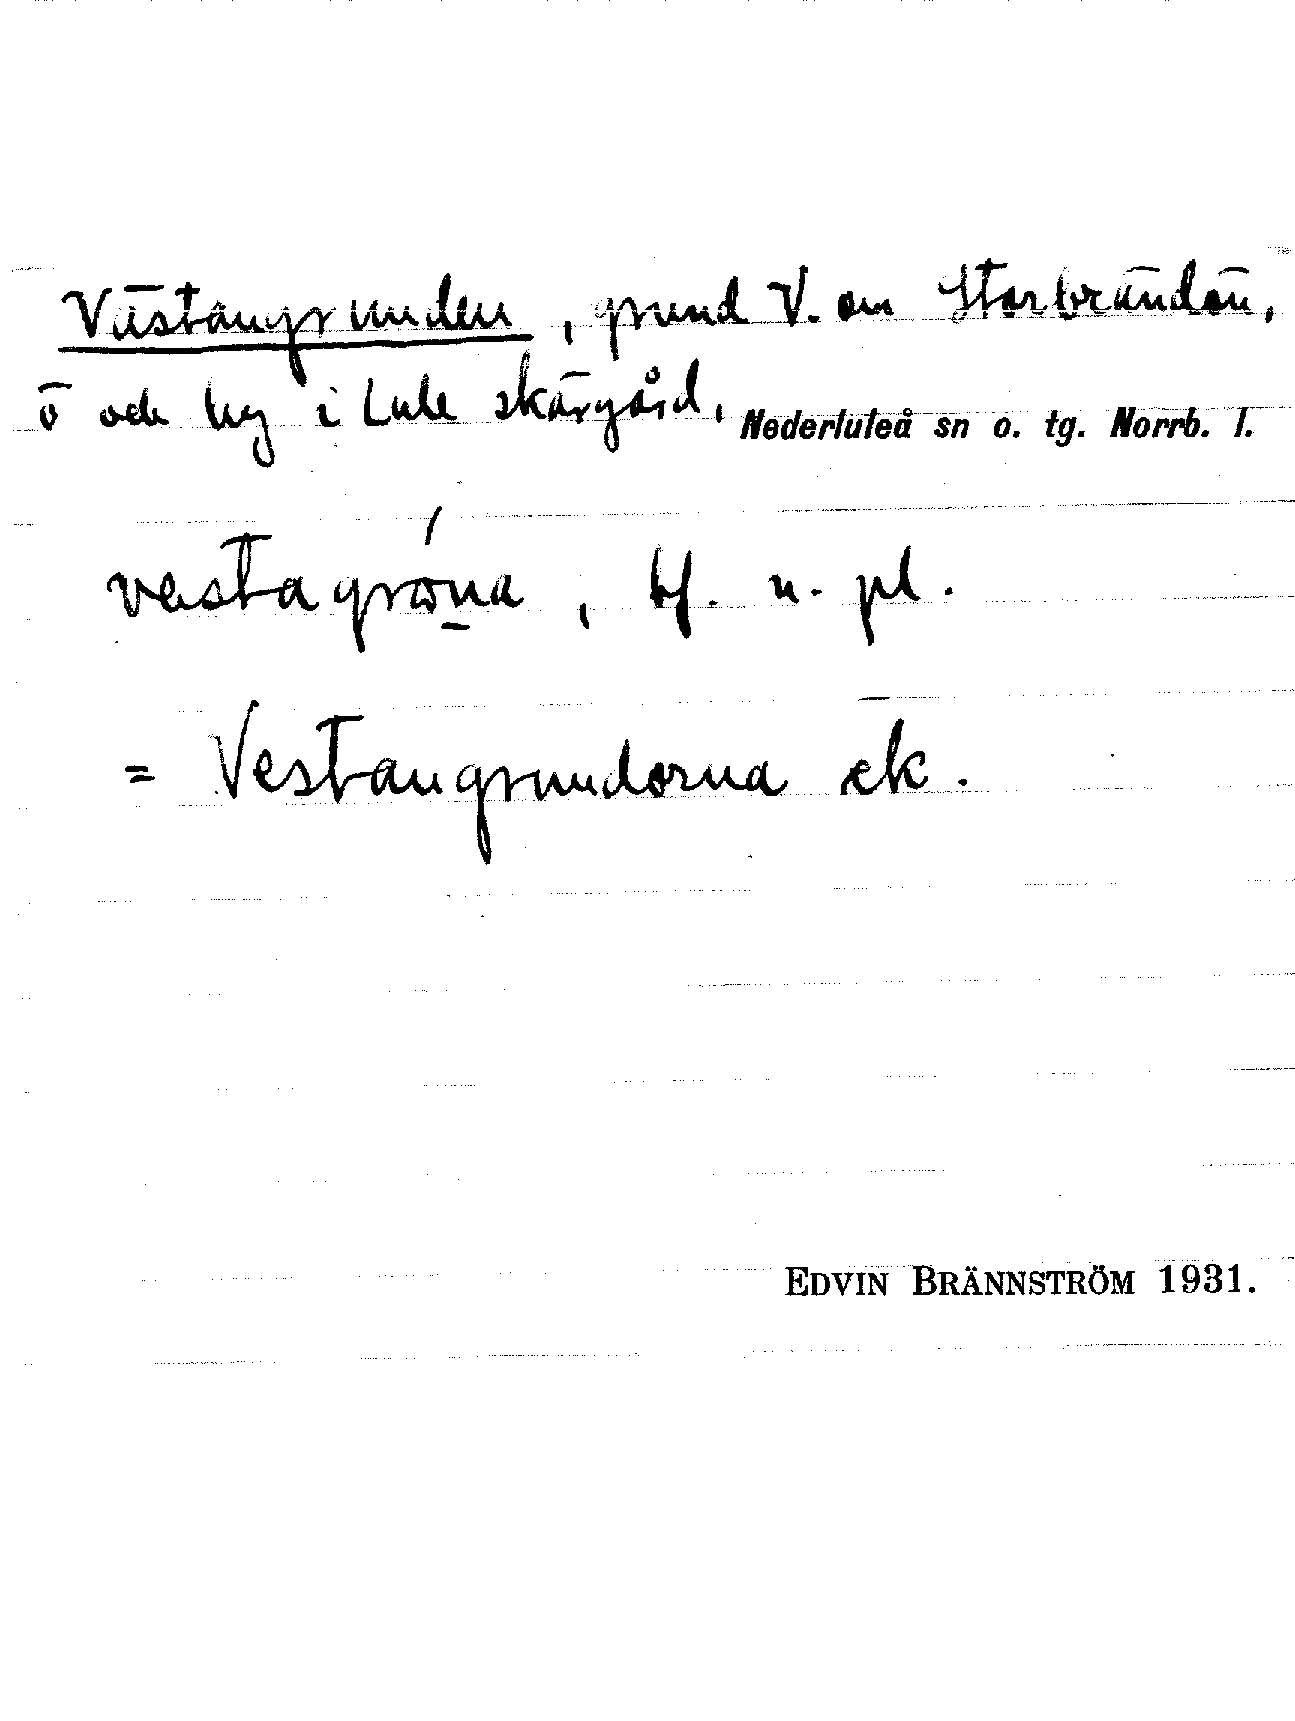 Västangrunden, grund V. om Storbrändön,
ö och by i Lule skärgård. Nederluleå sn o. tg. Norrb. l.
vestagrona, bf. n. pl.
= Vestangrundorna ek.
EDVIN BRÄNNSTRÖM 1931.